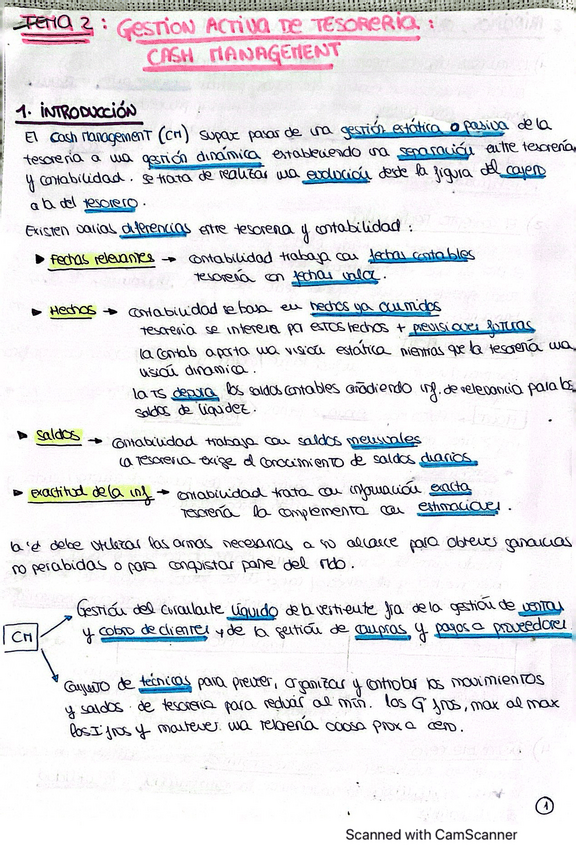 TEMA 2 : GESTIÓN ACTIVA DE TESORERÍA :
CASH MANAGEMENT
1. INTRODUCCIÓN
El Cash Management (CM) supone pasar de una gestión estática o pasiva de la
tesorería a una gestión dinámica estableciendo una separación entre tesorería
y contabilidad. se trata de realizar una evolución desde la figura del cajero
a la del tesorero.
Existen varias diferencias entre tesorería y contabilidad :
► Fechas relevantes → contabilidad trabaja con fechas contables
tesorería con fechas valor.
► Hechos → contabilidad se basa en hechos ya ocurridos
tesorería se interesa por estos hechos + previsiones futuras
la contab aporta una visión estática mientras que la tesorería una
visión dinámica.
la TS depura los saldos contables añadiendo inf. de relevancia para los
saldos de liquidez.
► Saldos → contabilidad trabaja con saldos mensuales
la tesorería exige el conocimiento de saldos diarios.
► exactitud de la inf → contabilidad trata con información exacta
tesorería la complementa con estimaciones.
la debe utilizar las armas necesarias a su alcance para obtener ganancias
no percibidas o para conquistar parte del
CM
Gestión del circulante líquido de la vertiente fra de la gestión de ventas
y cobro de clientes y de la gestión de compras y pagos a proveedores
Conjunto de técnicas para prever, organizar y controlar los movimientos
y saldos de tesorería para reducir al mín. los G fros, max al max
los I fros y mantener una tesorería ociosa prox a cero.
1
Scanned with CamScanner